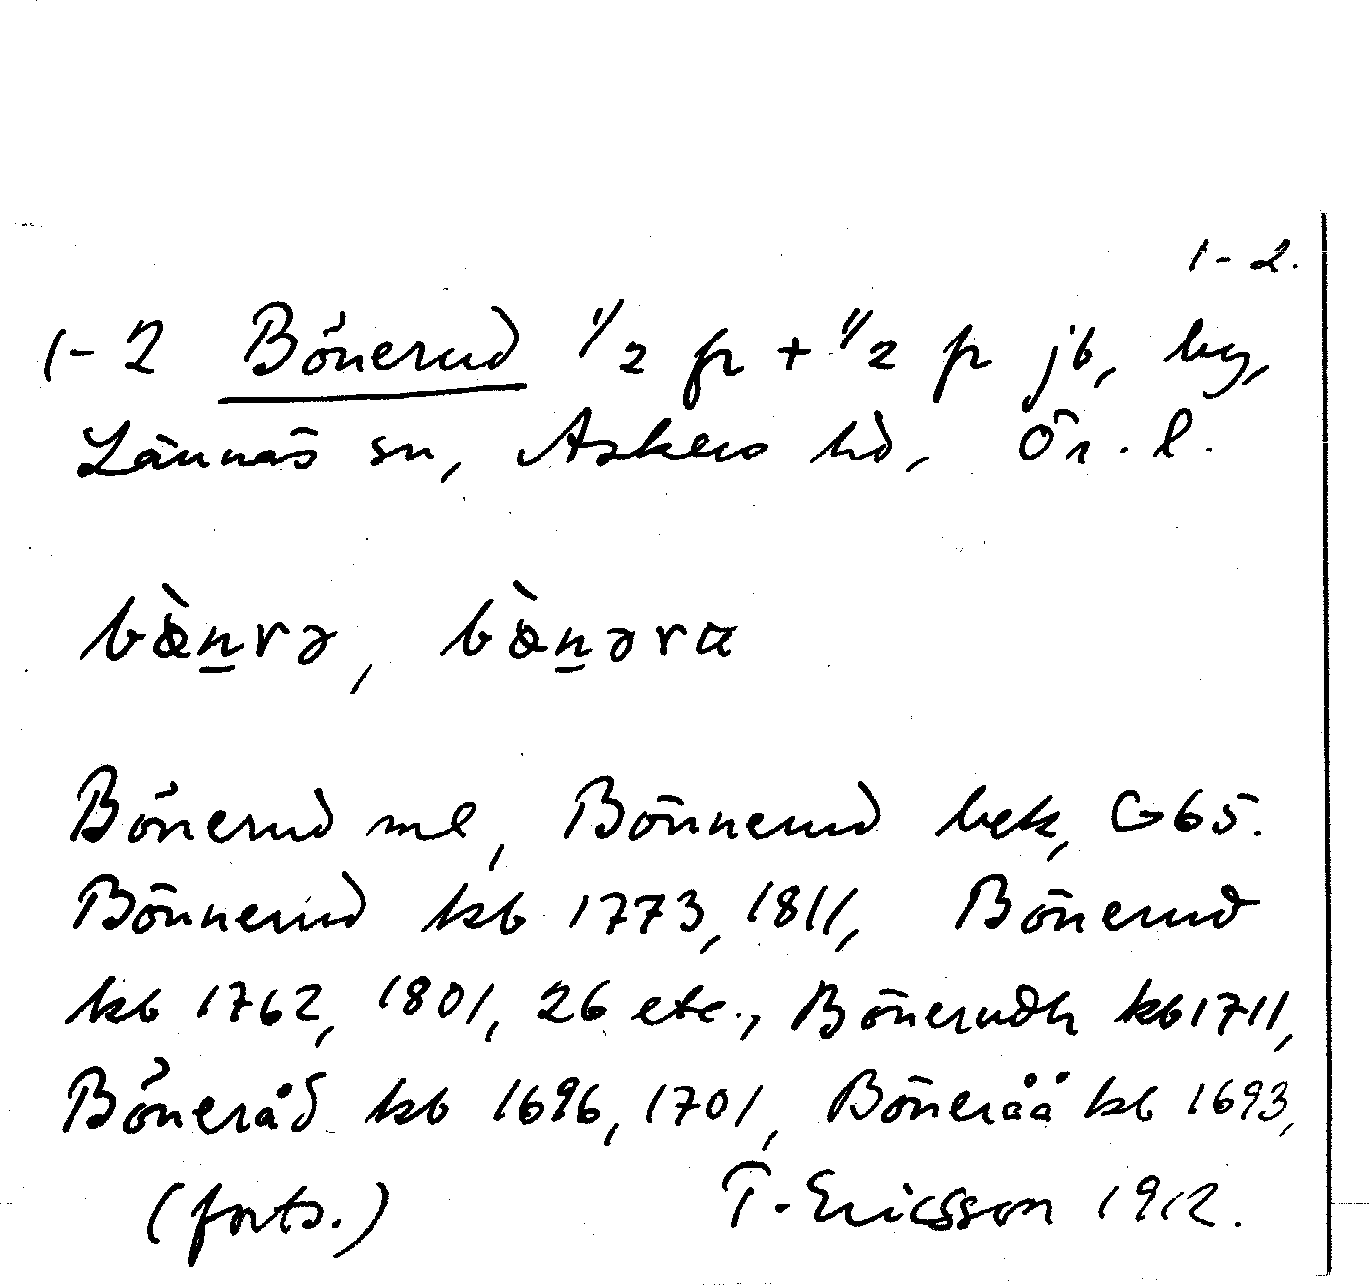 1-2.
1-2 Bönerud 1/2 fr + 1/2 fr jb, by,
Lännäs sn, Askers hd, Ör. l.
bæ̀n̲rə, bæ̀n̲əra
Bönerud ml, Bönnerud bek, G65.
Bönnerud kb 1773, 1811, Bönerud
kb 1762, 1801, 26 etc., Bönerudh kb 1711,
Böneråd kb 1696, 1701, Böneråå kb 1693,
(forts.) T. Ericsson 1912.